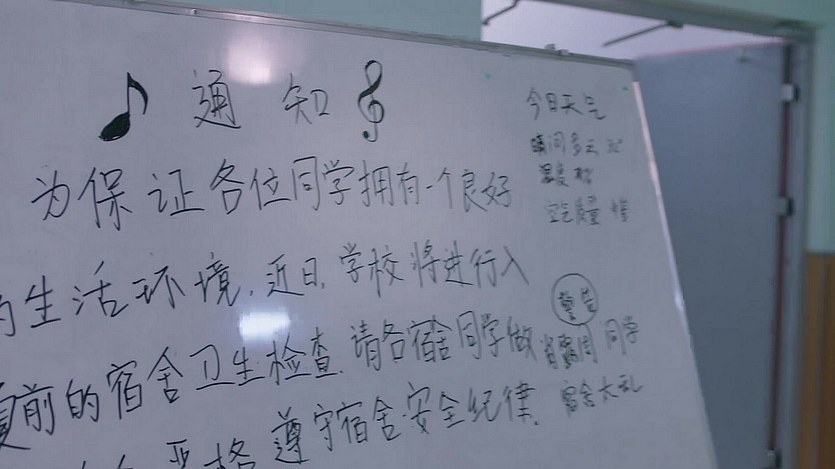 通知
为保证各位同学拥有一个良好
的生活环境,近日,学校将进行入
夏前的宿舍卫生检查.请各宿舍同学做
严格遵守宿舍安全纪律.
今日天气
晴间多云
温度
空气质量
警告
同学
宿舍太乱